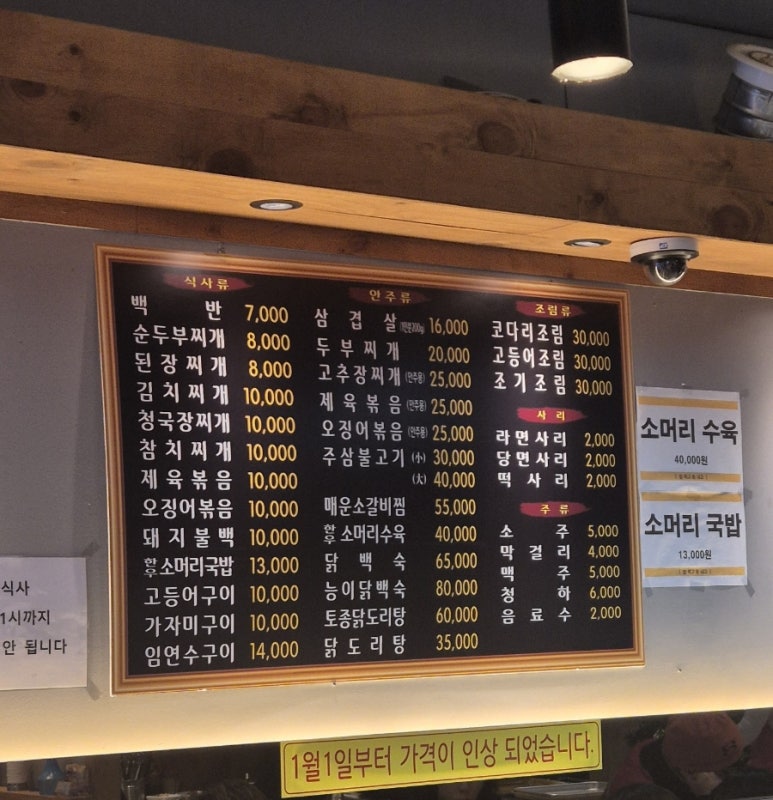 식사류
백반 7,000
순두부찌개 8,000
된장찌개 8,000
김치찌개 10,000
청국장찌개 10,000
참치찌개 10,000
제육볶음 10,000
오징어볶음 10,000
돼지불백 10,000
한우 소머리국밥 13,000
고등어구이 10,000
가자미구이 10,000
임연수구이 14,000
안주류
삼겹살 16,000
두부찌개 20,000
고추장찌개 (안주용) 25,000
제육볶음 (안주용) 25,000
오징어볶음 (안주용) 25,000
주삼불고기 (小) 30,000
(大) 40,000
매운소갈비찜 55,000
한우 소머리수육 40,000
닭백숙 65,000
능이닭백숙 80,000
토종닭도리탕 60,000
닭도리탕 35,000
조림류
코다리조림 30,000
고등어조림 30,000
조기조림 30,000
사리
라면사리 2,000
당면사리 2,000
떡사리 2,000
주류
소주 5,000
막걸리 4,000
맥주 5,000
청하 6,000
음료수 2,000
소머리 수육
40,000원
소머리 국밥
13,000원
식사
1시까지
안 됩니다
1월1일부터 가격이 인상 되었습니다.